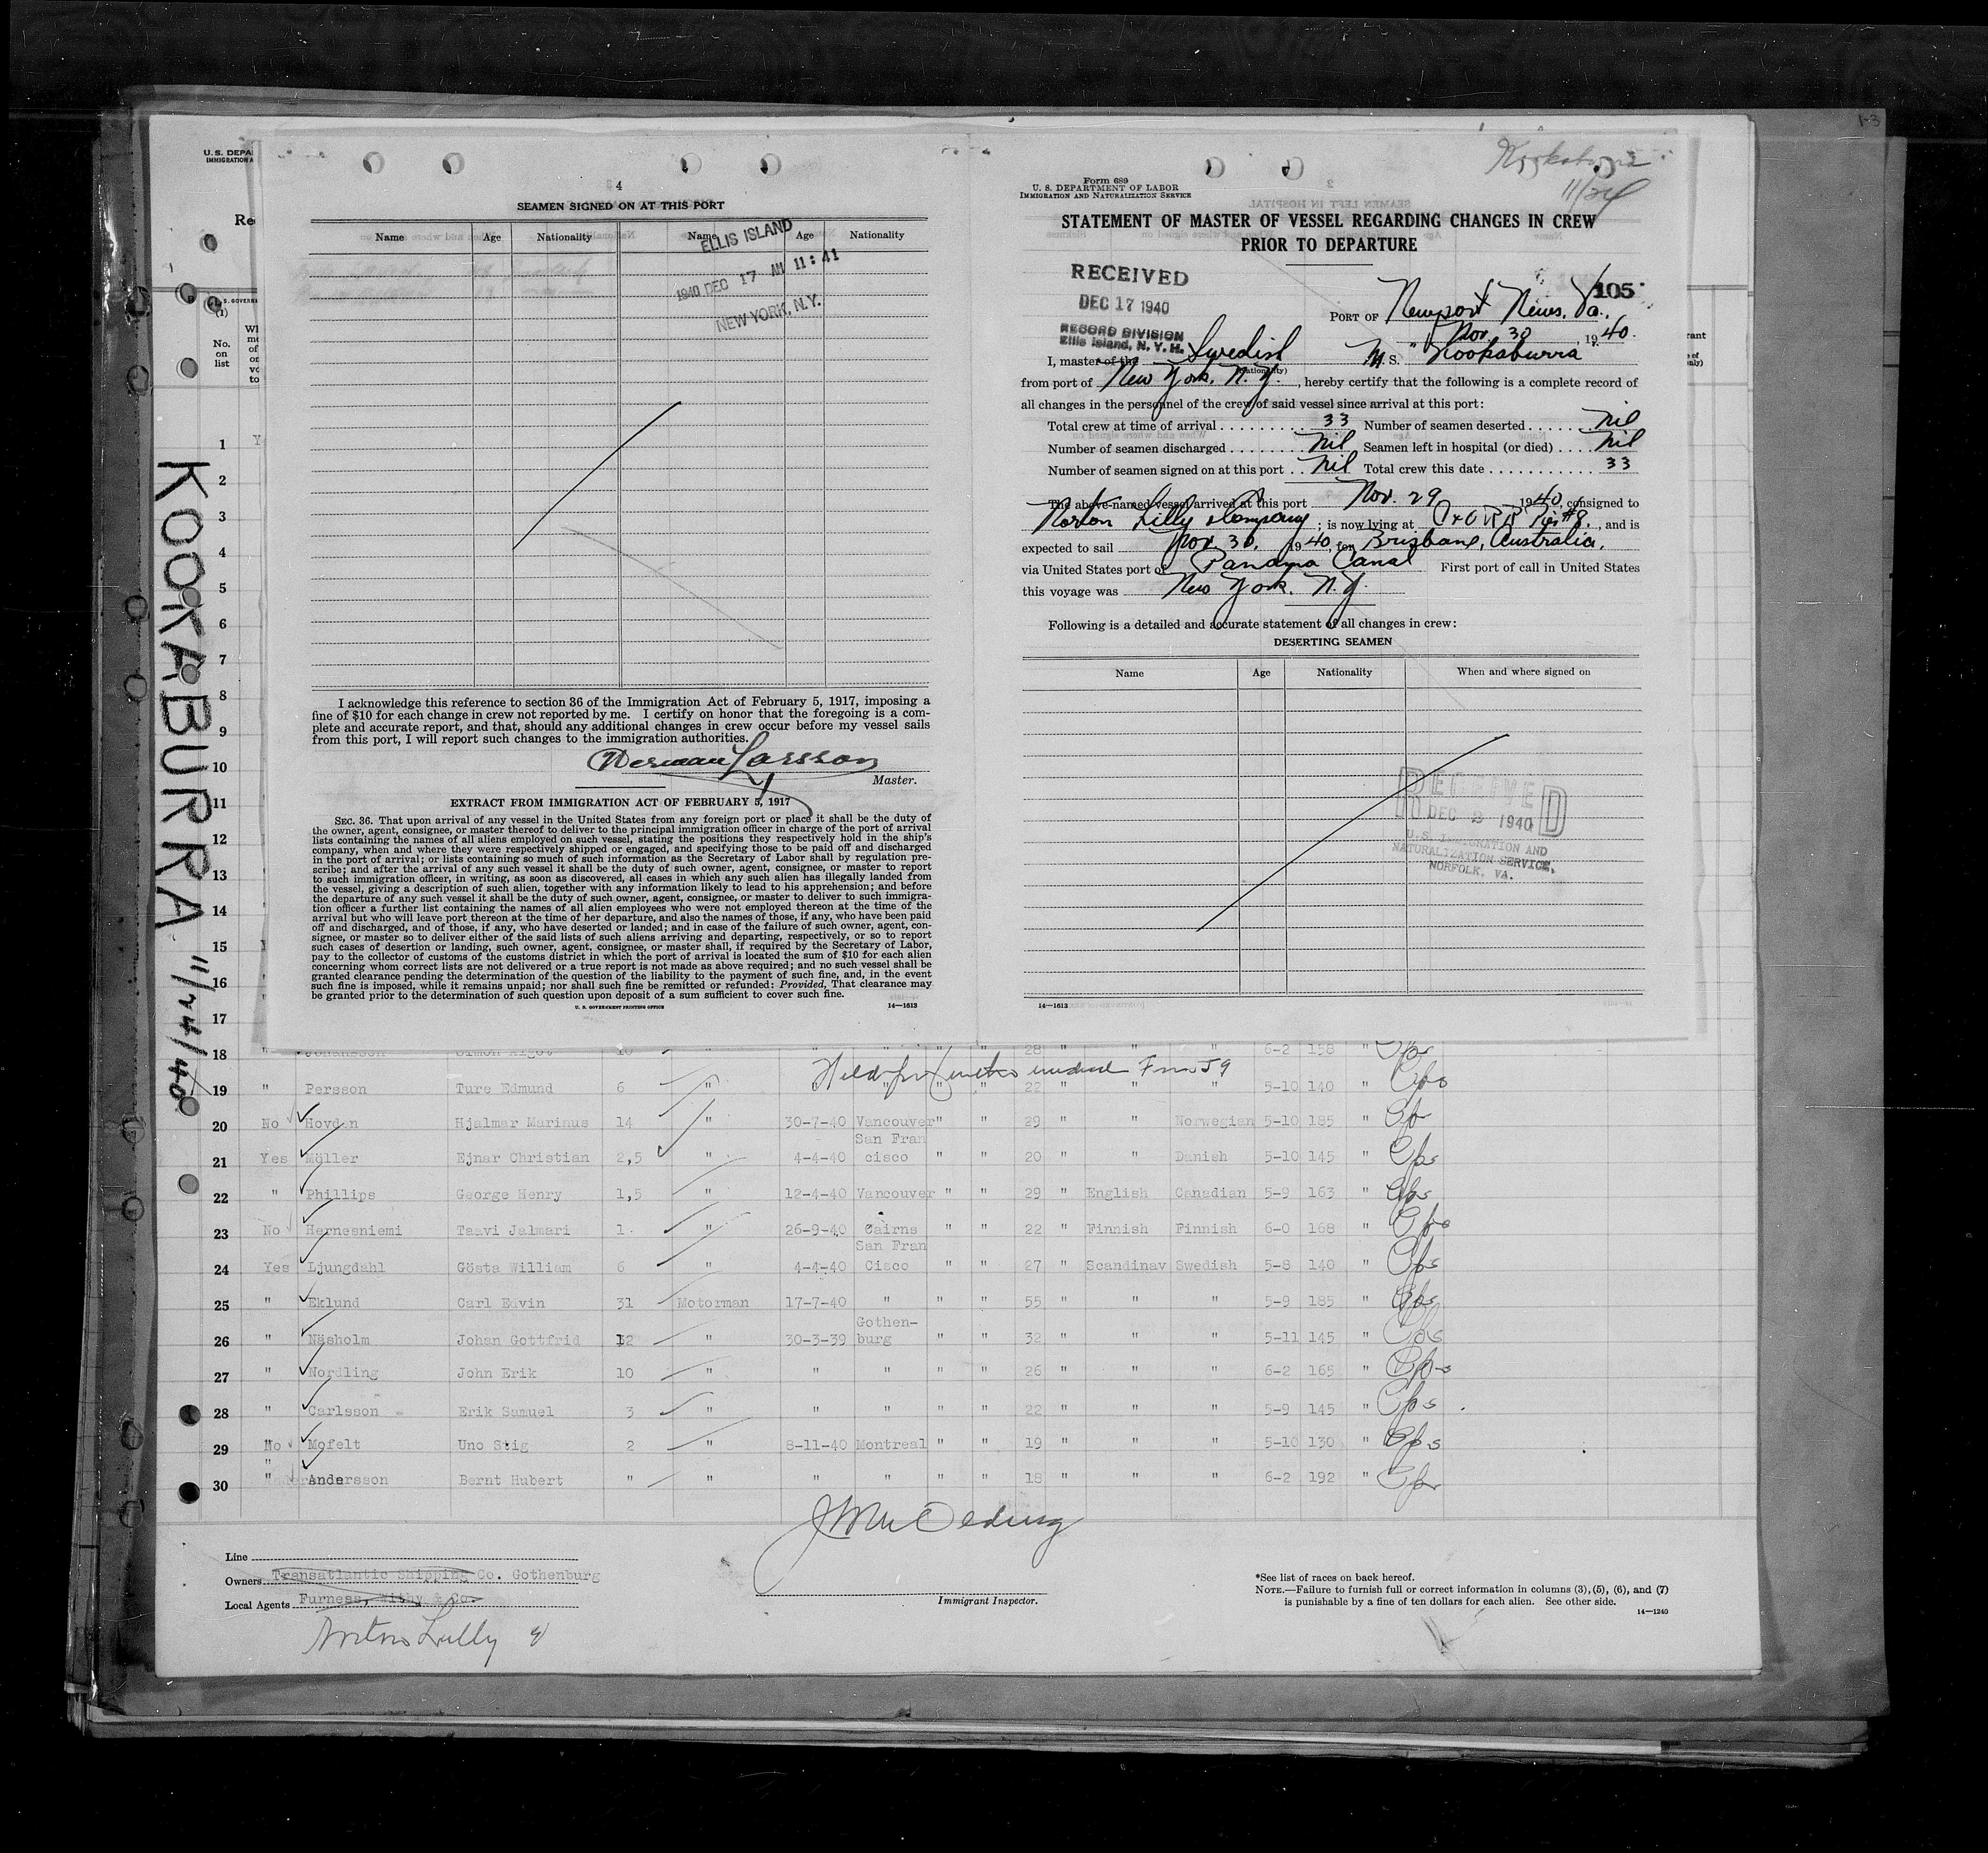 1-3
U. S. DEPA
IMMIGRATION A
Re
U. S. GOVERN
(1)
No.
on
list
4
SEAMEN SIGNED ON AT THIS PORT
Name Age Nationality Name Age Nationality
ELLIS ISLAND
1940 DEC 17 AM 11:41
NEW YORK, N.Y.
I acknowledge this reference to section 36 of the Immigration Act of February 5, 1917, imposing a
fine of $10 for each change in crew not reported by me. I certify on honor that the foregoing is a com-
plete and accurate report, and that, should any additional changes in crew occur before my vessel sails
from this port, I will report such changes to the immigration authorities.
Herman Larsson
Master.
EXTRACT FROM IMMIGRATION ACT OF FEBRUARY 5, 1917
SEC. 36. That upon arrival of any vessel in the United States from any foreign port or place it shall be the duty of
the owner, agent, consignee, or master thereof to deliver to the principal immigration officer in charge of the port of arrival
lists containing the names of all aliens employed on such vessel, stating the positions they respectively hold in the ship's
company, when and where they were respectively shipped or engaged, and specifying those to be paid off and discharged
in the port of arrival; or lists containing so much of such information as the Secretary of Labor shall by regulation pre-
scribe; and after the arrival of any such vessel it shall be the duty of such owner, agent, consignee, or master to report
to such immigration officer, in writing, as soon as discovered, all cases in which any such alien has illegally landed from
the vessel, giving a description of such alien, together with any information likely to lead to his apprehension; and before
the departure of any such vessel it shall be the duty of such owner, agent, consignee, or master to deliver to such immigra-
tion officer a further list containing the names of all alien employees who were not employed thereon at the time of the
arrival but who will leave port thereon at the time of her departure, and also the names of those, if any, who have been paid
off and discharged, and of those, if any, who have deserted or landed; and in case of the failure of such owner, agent, con-
signee, or master so to deliver either of the said lists of such aliens arriving and departing, respectively, or so to report
such cases of desertion or landing, such owner, agent, consignee, or master shall, if required by the Secretary of Labor,
pay to the collector of customs of the customs district in which the port of arrival is located the sum of $10 for each alien
concerning whom correct lists are not delivered or a true report is not made as above required; and no such vessel shall be
granted clearance pending the determination of the question of the liability to the payment of such fine, and, in the event
such fine is imposed, while it remains unpaid; nor shall such fine be remitted or refunded: Provided, That clearance may
be granted prior to the determination of such question upon deposit of a sum sufficient to cover such fine.
U. S. GOVERNMENT PRINTING OFFICE 14—1613
Kookaburra
11/24
Form 689
U. S. DEPARTMENT OF LABOR
IMMIGRATION AND NATURALIZATION SERVICE
STATEMENT OF MASTER OF VESSEL REGARDING CHANGES IN CREW
PRIOR TO DEPARTURE
RECEIVED
DEC 17 1940
RECORD DIVISION
Ellis Island, N. Y. H.
105
PORT OF Newport News, Va.,
Nov. 30, 1940.
I, master of the Swedish M. S. "Kookaburra"
(Nationality)
from port of New York, N. Y., hereby certify that the following is a complete record of
all changes in the personnel of the crew of said vessel since arrival at this port:
Total crew at time of arrival 33 Number of seamen deserted nil
Number of seamen discharged nil Seamen left in hospital (or died) nil
Number of seamen signed on at this port nil Total crew this date 33
The above-named vessel arrived at this port Nov. 29, 1940, consigned to
Norton Lilly & Company; is now lying at C & O RR Pier #8, and is
expected to sail Nov. 30, 1940, for Brisbane, Australia,
via United States port of Panama Canal First port of call in United States
this voyage was New York, N. Y.
Following is a detailed and accurate statement of all changes in crew:
DESERTING SEAMEN
Name Age Nationality When and where signed on
RECEIVED
DEC 3 1940
U.S. IMMIGRATION AND
NATURALIZATION SERVICE,
NORFOLK, VA.
14—1613
KOOKABURRA 11/24/40
1
2
3
4
5
6
7
8
9
10
11
12
13
14
15
16
17
18 " Johansson Simon Algot 10 " " " " 28 " " " 6-2 158 "
19 " Persson Ture Edmund 6 " " " " 22 " " " 5-10 140 "
20 No Hovden Hjalmar Marinus 14 " 30-7-40 Vancouver " " 29 " " Norwegian 5-10 185 "
21 Yes Möller Ejnar Christian 2,5 " 4-4-40 San Fran cisco " " 20 " " Danish 5-10 145 "
22 " Phillips George Henry 1,5 " 12-4-40 Vancouver " " 29 " English Canadian 5-9 163 "
23 No Hernesniemi Taavi Jalmari 1 " 26-9-40 Cairns " " 22 " Finnish Finnish 6-0 168 "
24 Yes Ljungdahl Gösta William 6 " 4-4-40 San Fran Cisco " " 27 " Scandinav Swedish 5-8 140 "
25 " Eklund Carl Edvin 31 Motorman 17-7-40 " " " 55 " " " 5-9 185 "
26 " Näsholm Johan Gottfrid 12 " 30-3-39 Gothen- burg " " 32 " " " 5-11 145 "
27 " Nordling John Erik 10 " " " " " 26 " " " 6-2 165 "
28 " Carlsson Erik Samuel 3 " " " " " 22 " " " 5-9 145 "
29 No Mofelt Uno Stig 2 " 8-11-40 Montreal " " 19 " " " 5-10 130 "
30 " Andersson Bernt Hubert " " " " " " 18 " " " 6-2 192 "
Line
Owners Transatlantic Shipping Co. Gothenburg
Local Agents Furness, Withy & Co.
Norton Lilly
Immigrant Inspector.
*See list of races on back hereof.
NOTE.—Failure to furnish full or correct information in columns (3), (5), (6), and (7)
is punishable by a fine of ten dollars for each alien. See other side.
14—1240